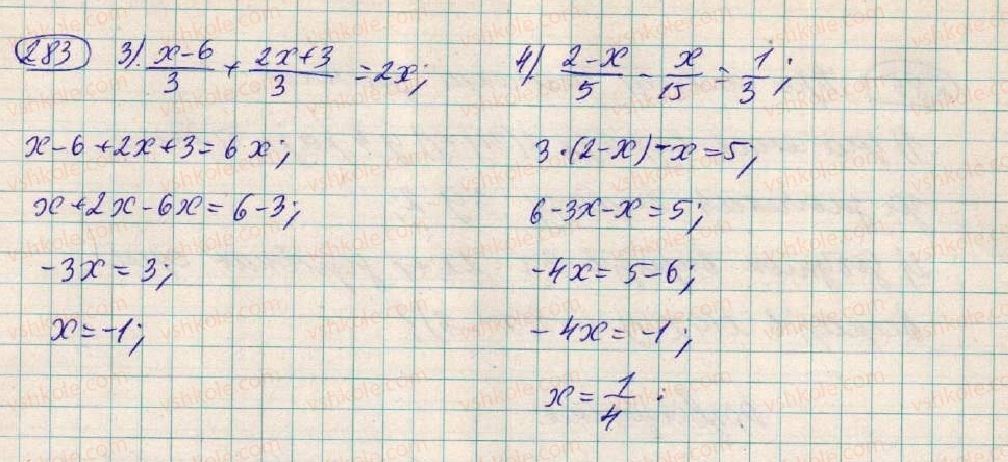 283 3) (x-6)/3 + (2x+3)/3 = 2x;
x-6+2x+3=6x;
x+2x-6x=6-3;
-3x=3;
x=-1;
4) (2-x)/5 - x/15 = 1/3;
3·(2-x)-x=5;
6-3x-x=5;
-4x=5-6;
-4x=-1;
x=1/4.
vshkole.com